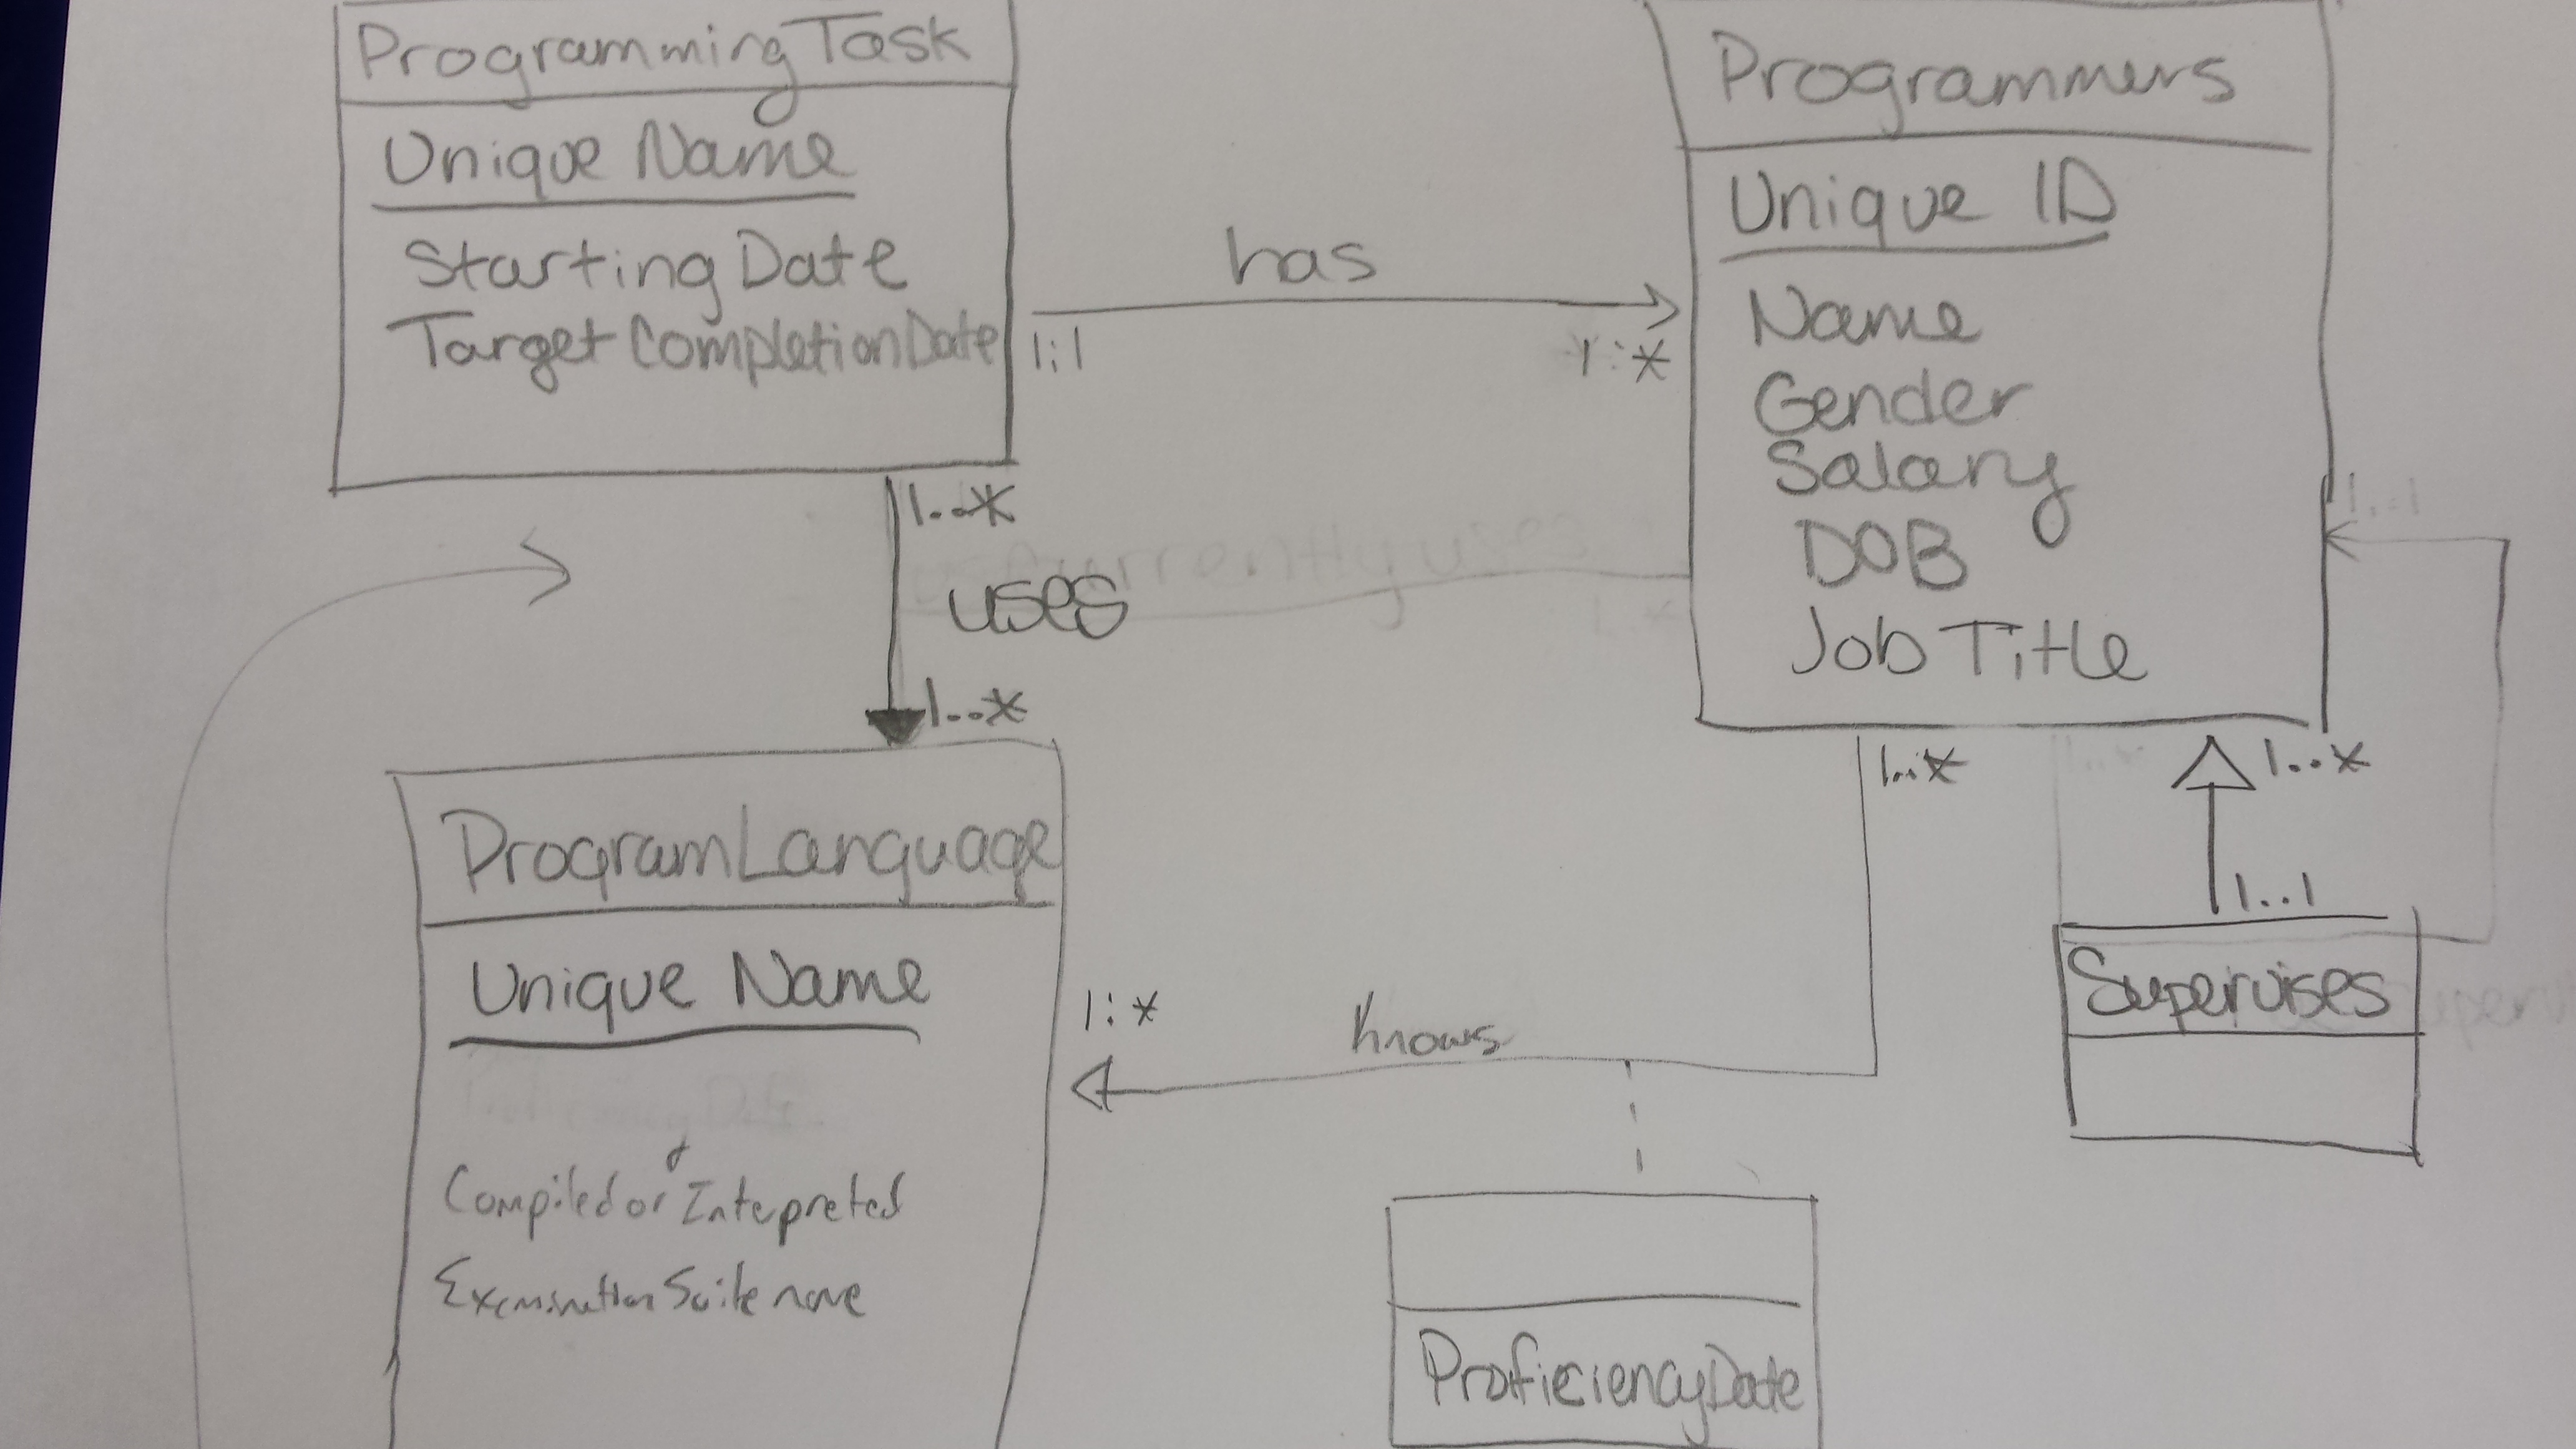 ProgrammingTask
Unique Name
StartingDate
TargetCompletionDate
has
1:1
1:*
Programmers
Unique ID
Name
Gender
Salary
DOB
JobTitle
1..1
1..*
uses
1..*
currently uses
ProgramLanguage
Unique Name
Compiled or Interpreted
1:*
knows
1..*
1..*
1..1
Supervises
ProficiencyDate